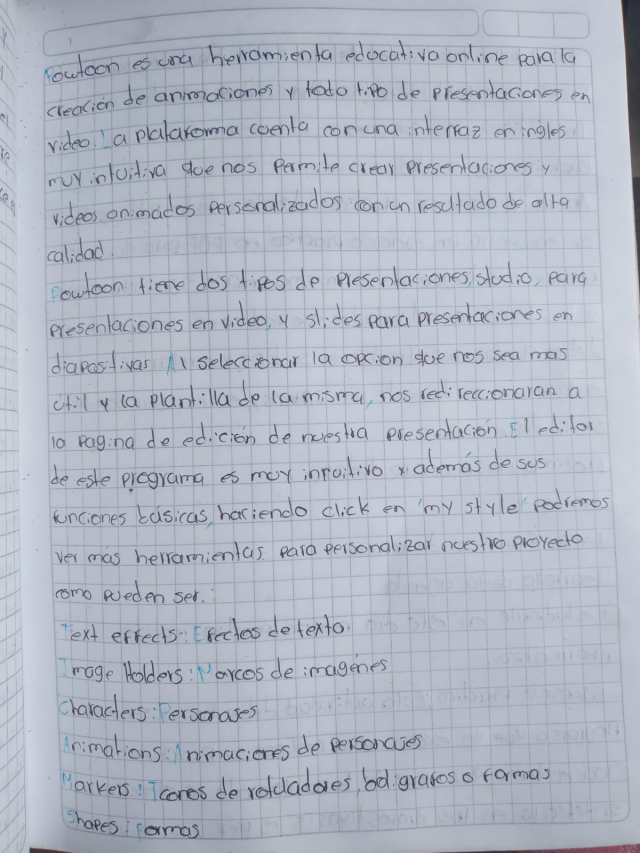 Powtoon es una herramienta educativa online para la
creación de animaciones y todo tipo de presentaciones en
video. La plataforma cuenta con una interfaz en ingles
muy intuitiva que nos permite crear presentaciones y
videos animados personalizados con un resultado de alta
calidad.
Powtoon tiene dos tipos de presentaciones, studio, para
presentaciones en video, y slides para presentaciones en
diapositivas. Al seleccionar la opcion que nos sea mas
util y la plantilla de la misma, nos redireccionaran a
la pagina de edición de nuestra presentación. El editor
de este programa es muy intuitivo y además de sus
funciones básicas, haciendo click en "my style" podremos
ver mas herramientas para personalizar nuestro proyecto
como pueden ser:
Text effects: Efectos de texto.
Image Holders: Marcos de imagénes
Characters: Personajes
Animations: Animaciones de personajes
Markers: Iconos de rotuladores, boligrafos o formas
Shapes: Formas